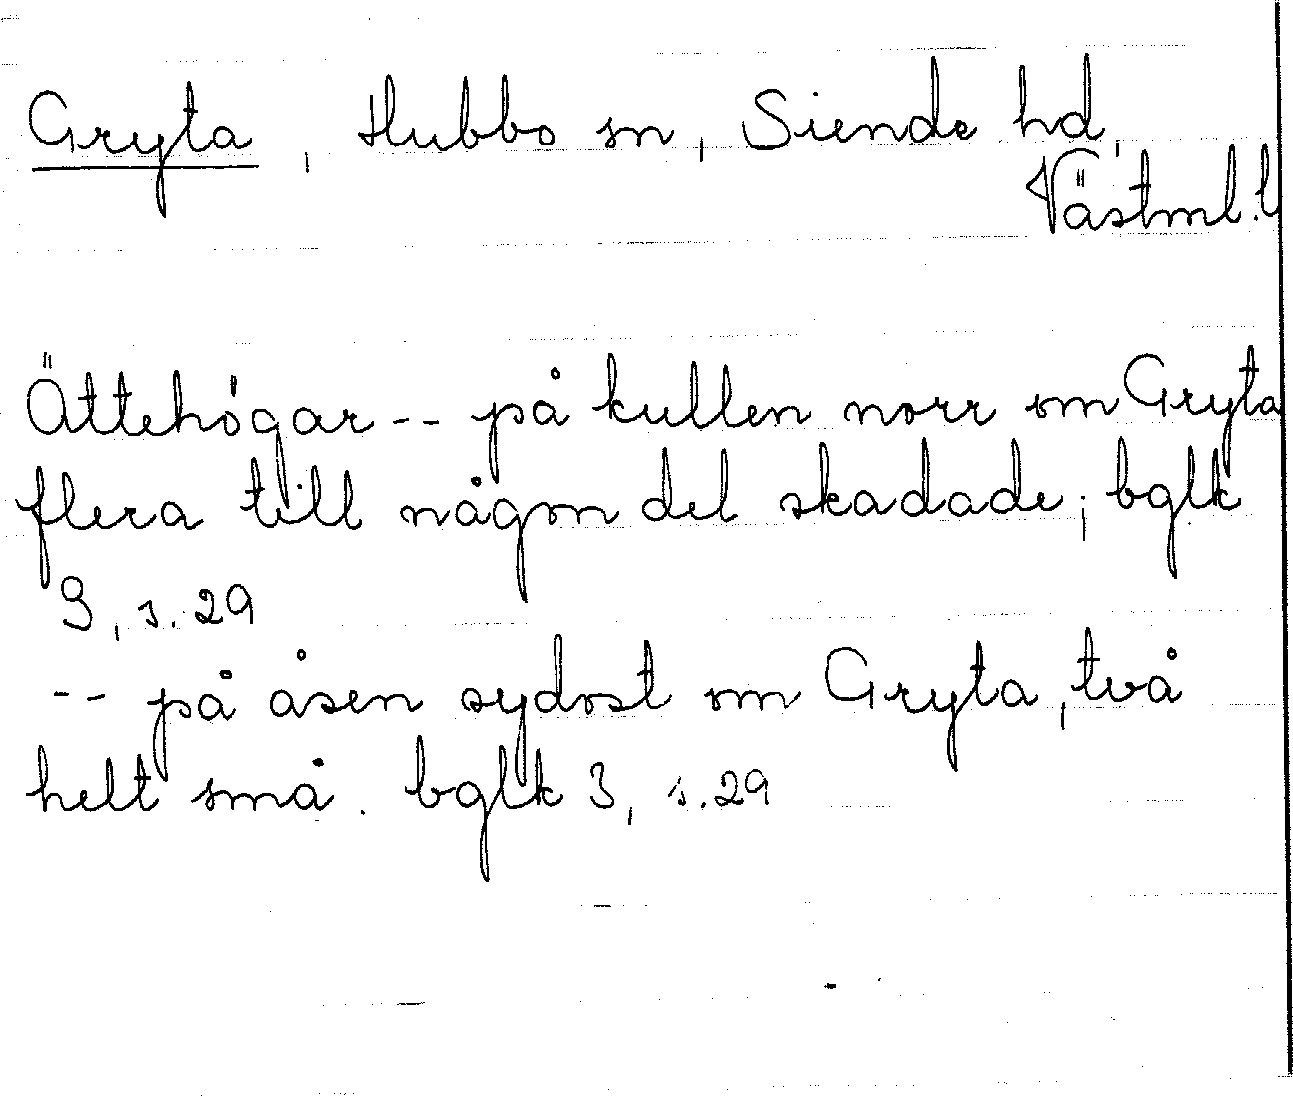 Gryta, Hubbo sn, Siende hd,
Västml. l
Ättehögar -- på kullen norr om Gryta
flera till någon del skadade; bglk
3, s. 29
-- på åsen sydost om Gryta, två
helt små. bglk 3, s. 29